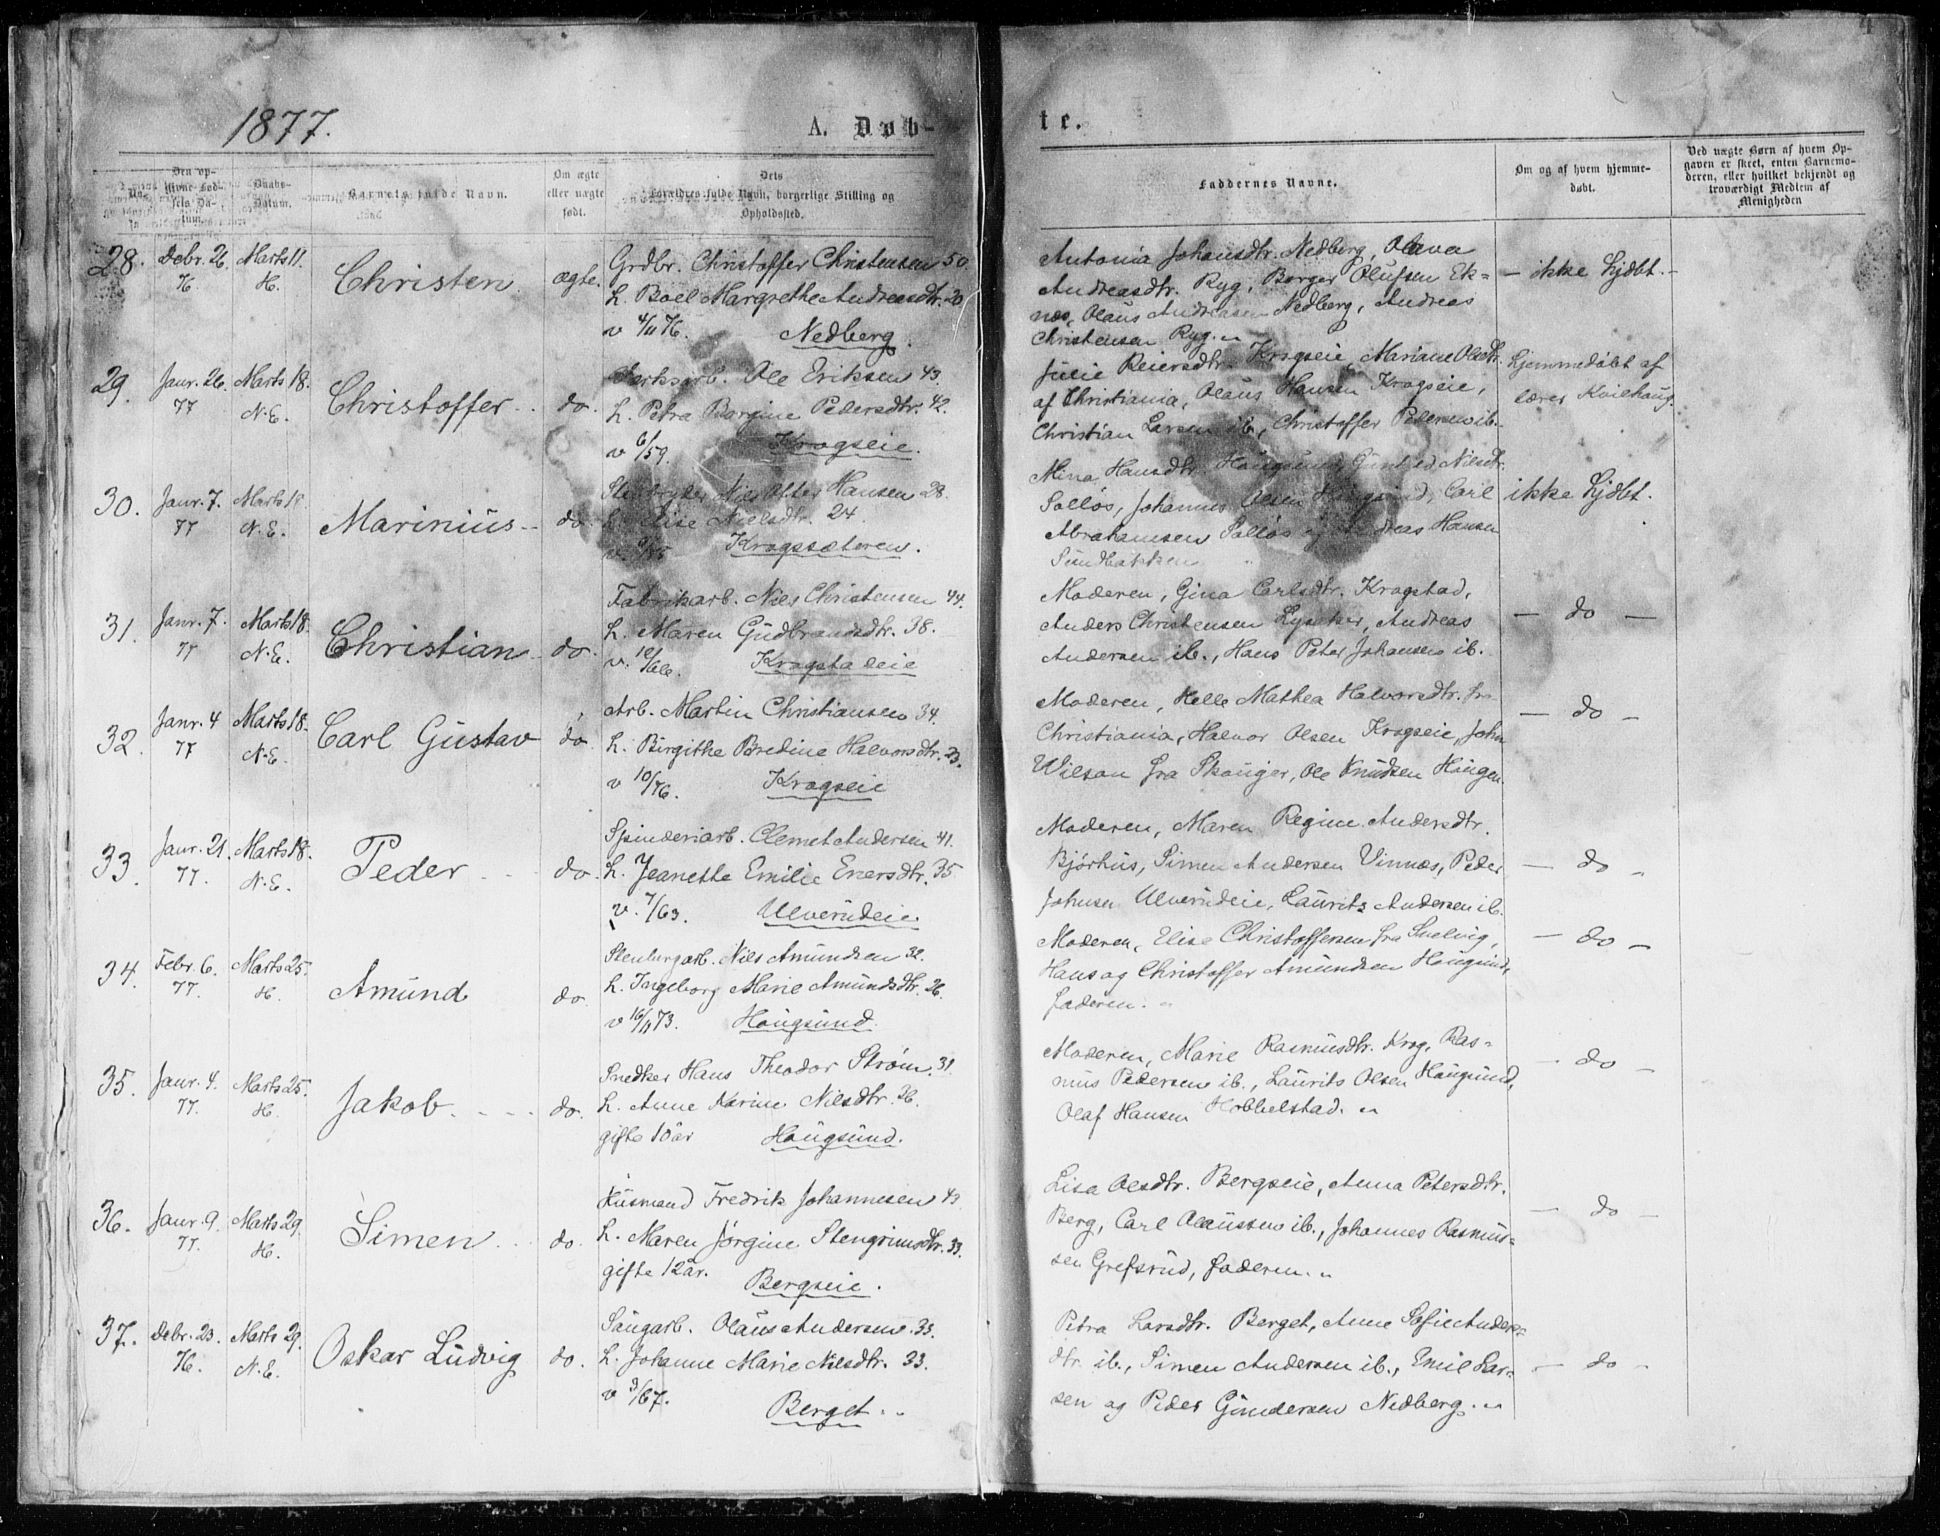 4
1877.
A. Døb-
te.
Den op-
givne Fød-
sels Da-
tum.
Daabs-
Datum.
Barnets fulde Navn.
Om ægte
eller uægte
født.
Dets
Forældres fulde Navn, borgerlige Stilling og
Opholdssted.
Faddernes Navne.
Om og af hvem hjemme-
døbt.
Ved uægte Børn af hvem Op-
gaven er skeet, enten Barnemo-
deren, eller hvilket bekjendt og
troværdigt Medlem af
Menigheden
28. Debr. 26. Marts 11. Christen ægte. Grdbr. Christoffer Christensen 50
76. H. h. Boel Margrethe Andreasdtr. 20
v 4/11 76. Nedberg.
Antonia Johansdtr. Nedberg, Olava
Andreasdtr. Ryg, Borger Olufsen Ek=
næs, Olaus Andreasen Nedberg, Andreas
Christensen Ryg.
– ikke hjdbt. –
29. Janr. 26. Marts 18. Christoffer do. Ole Eriksen 43.
77 N.E. h. Petra Bargine Pedersdtr. 42.
v 6/59. Kragseie.
Julie Reiersdtr. Kragseie, Mariane Olsdtr.
af Christiania, Olaus Hansen Kragseie,
Christian Larsen ib., Christoffer Pedersen ib.
Hjemmedøbt af
Lærer Kvilhaug.
30. Janr. 7. Marts 18 Marinius do. Nils Hansen 28.
77 N.E. h. Elise Nielsdtr. 24.
Kragssæteren.
Mina Hansdtr. Nilsdtr.
Solløs, Johannes Olsen Carl
Abrahamsen Solløs og Andreas Hansen
ikke hjdbt.
31. Janr. 7. Marts 18. Christian do. Fabrikarb. Nils Christensen 44.
77 N.E. h. Maren Gudbrandsdtr. 38.
Kragstadeie
Moderen, Gina Carlsdtr. Kragstad,
Anders Christensen Andreas
Andersen ib., Hans Peter Johansen ib.
– do –
32. Janr. 4 Marts 18. Carl Gustav do. Arb. Martin Christiansen 34.
77 N.E. h. Birgithe Bredine Halvorsdtr. 23.
v 10/76. Kragseie
Moderen, Helle Mathea Halvorsdtr. fra
Christiania, Halvor Olsen Kragseie, John
Wilson fra Skouger, Ole Knudsen Hougen.
– do –
33. Janr. 21. Marts 18. Peder do. Spinderiarb. Clemet Andersen 41.
77. N.E. h. Jeanette Emilie Enersdtr. 35
v. 7/63. Ulverudeie
Moderen, Maren Regine Andersdtr.
Bjørhus, Simen Andersen Vinnæs, Peder
Johnsen Ulverudeie, Laurits Andersen ib.
– do „
34. Febr. 6. Marts 25. Amund do. Nils Amundsen 32.
77. H. h. Ingeborg Marie Amundsdtr. 26.
v 16/11 73. Hougsund.
Moderen, Elise Christoffersen fra Snelvig,
Hans og Christoffer Amundsen Hougsund,
faderen.
– do –
35. Janr. 4. Marts 25. Jakob. do. Snedker Hans Theodor Strøm. 31.
77. H. h. Anne Karine Nilsdtr. 36.
gifte 10 år Hougsund.
Moderen, Marie Rasmusdtr. Krog, Ras=
mus Pedersen ib., Laurits Olsen Hougsund,
Olaf Hansen Hobbelstad.
– do –
36. Janr. 9. Marts 29. Simen do. Husmand Fredrik Johannesen 43
77. H. h. Maren Jørgine Stengrimsdtr. 33.
gifte 12 år. Bergseie.
Lisa Olsdtr. Bergseie, Anna Petersdtr.
Berg, Carl Olaussen ib., Johannes Rasmus=
sen Grefsrud, faderen.
– do –
37. Debr. 23. Marts 29. Oskar Ludvig do. Saugarb. Olaus Andersen. 33.
76. N.E. h. Johanne Marie Nilsdtr. 33.
v 3/67. Berget.
Petra Larsdtr. Berget, Anne Sofie Anders=
dtr. ib., Simen Andersen ib., Emil Lar=
sen og Peder Gundersen Nedberg.
– do –